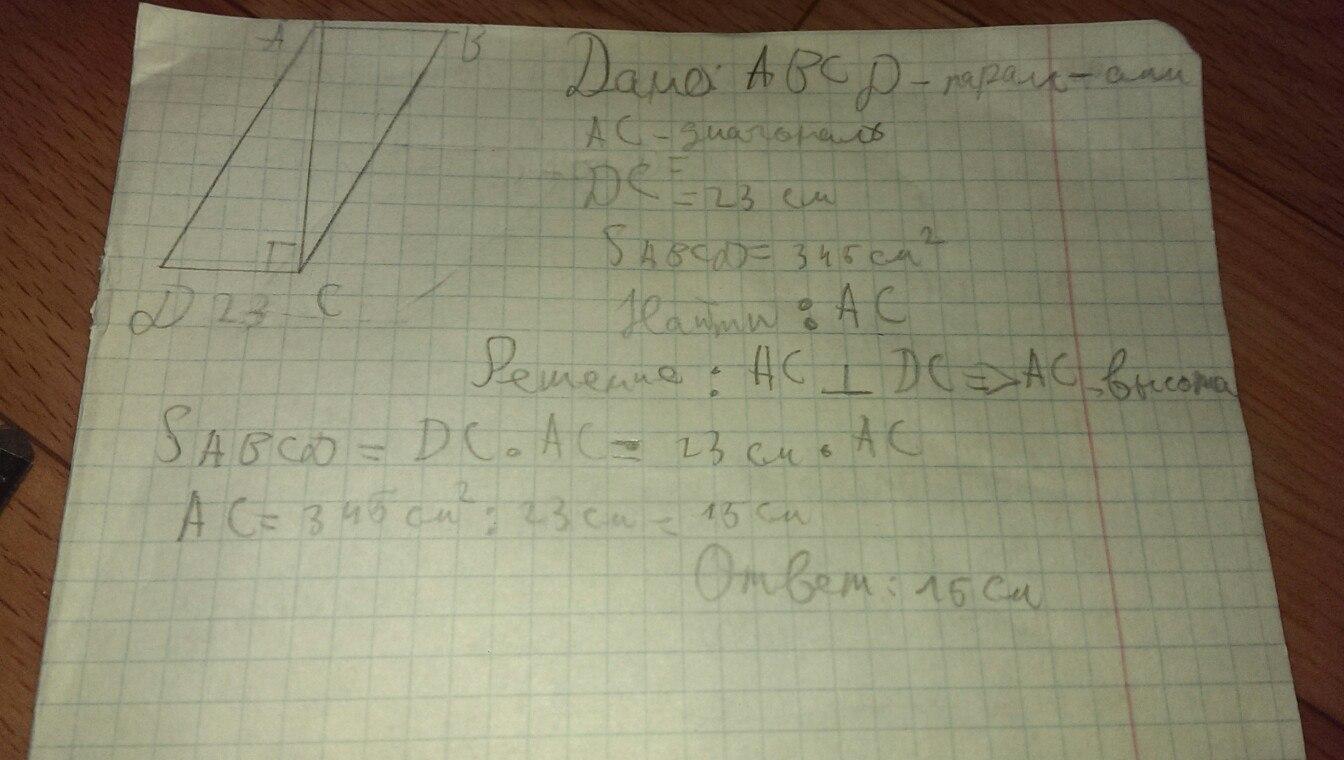 A B
D 23 C
Дано: ABCD - паралл-амм
AC - диагональ
DC = 23 см
SABCD = 345 см²
Найти : AC
Решение : AC ⊥ DC => AC - высота
SABCD = DC · AC = 23 см · AC
AC = 345 см² : 23 см = 15 см
Ответ : 15 см